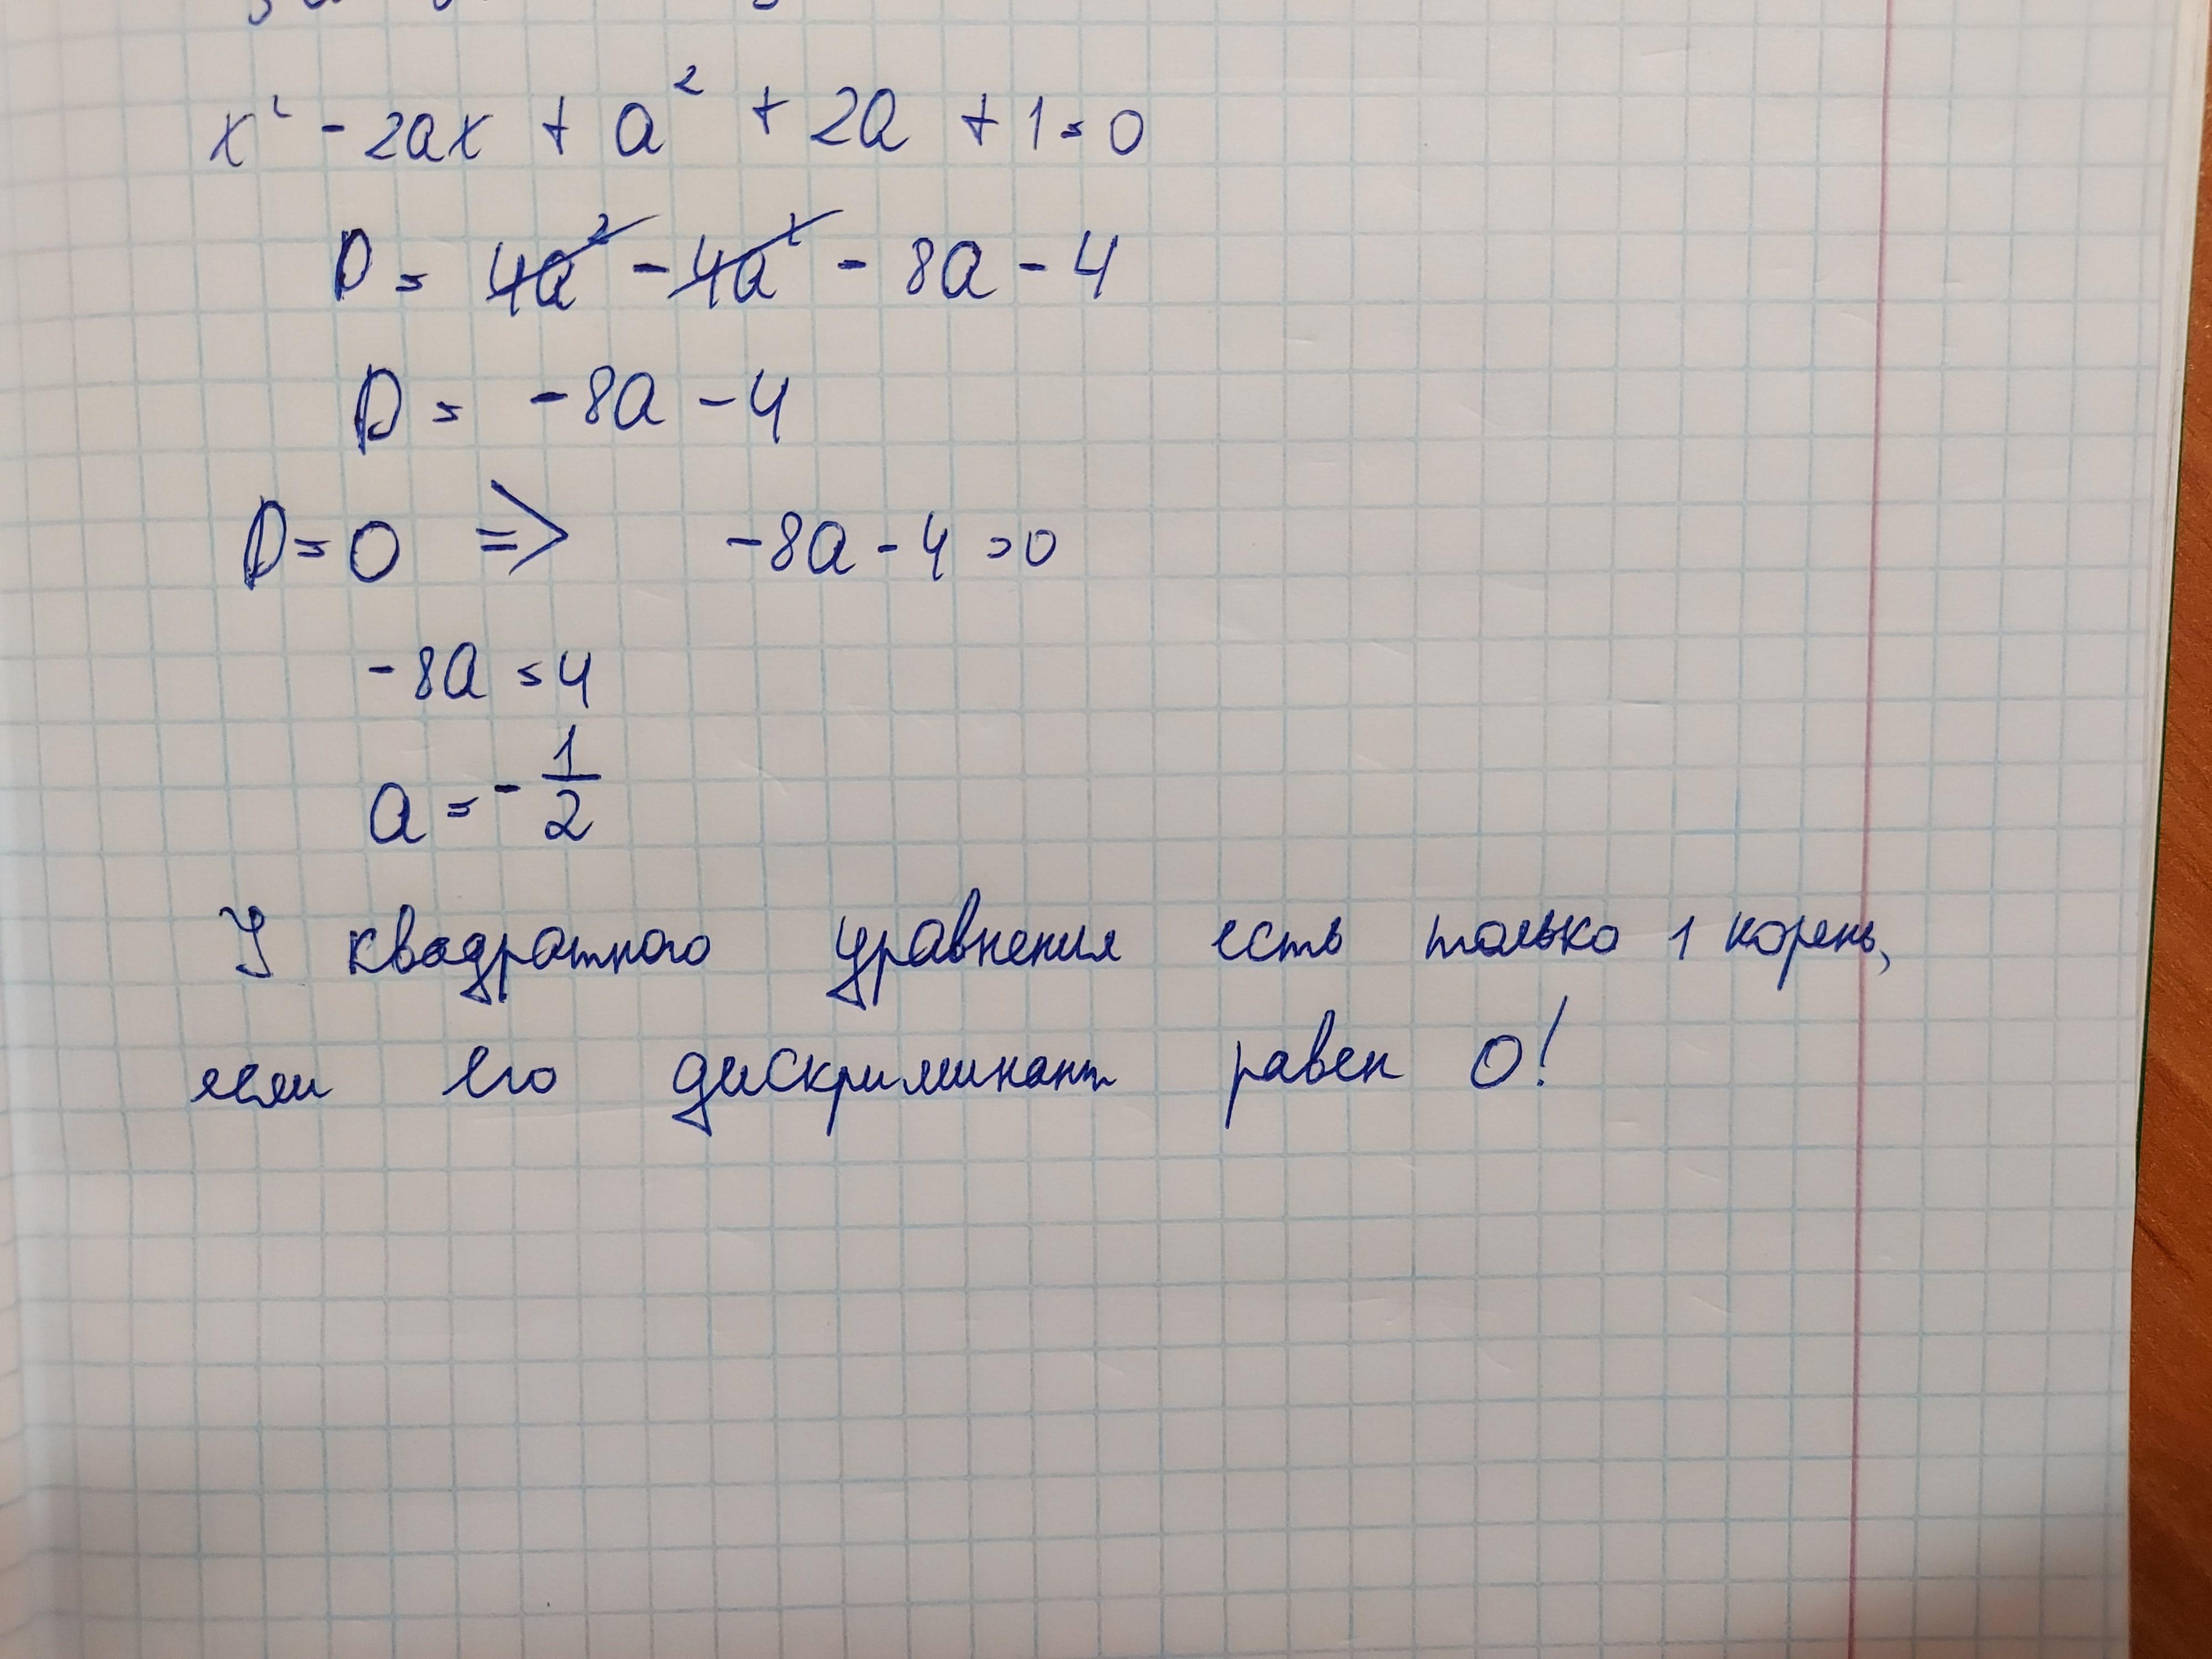 x² - 2ax + a² + 2a + 1 = 0
D = 4a² - 4a² - 8a - 4
D = -8a - 4
D = 0 => -8a - 4 = 0
-8a = 4
a = - 1/2
У квадратного уравнения есть только 1 корень,
если его дискриминант равен 0!